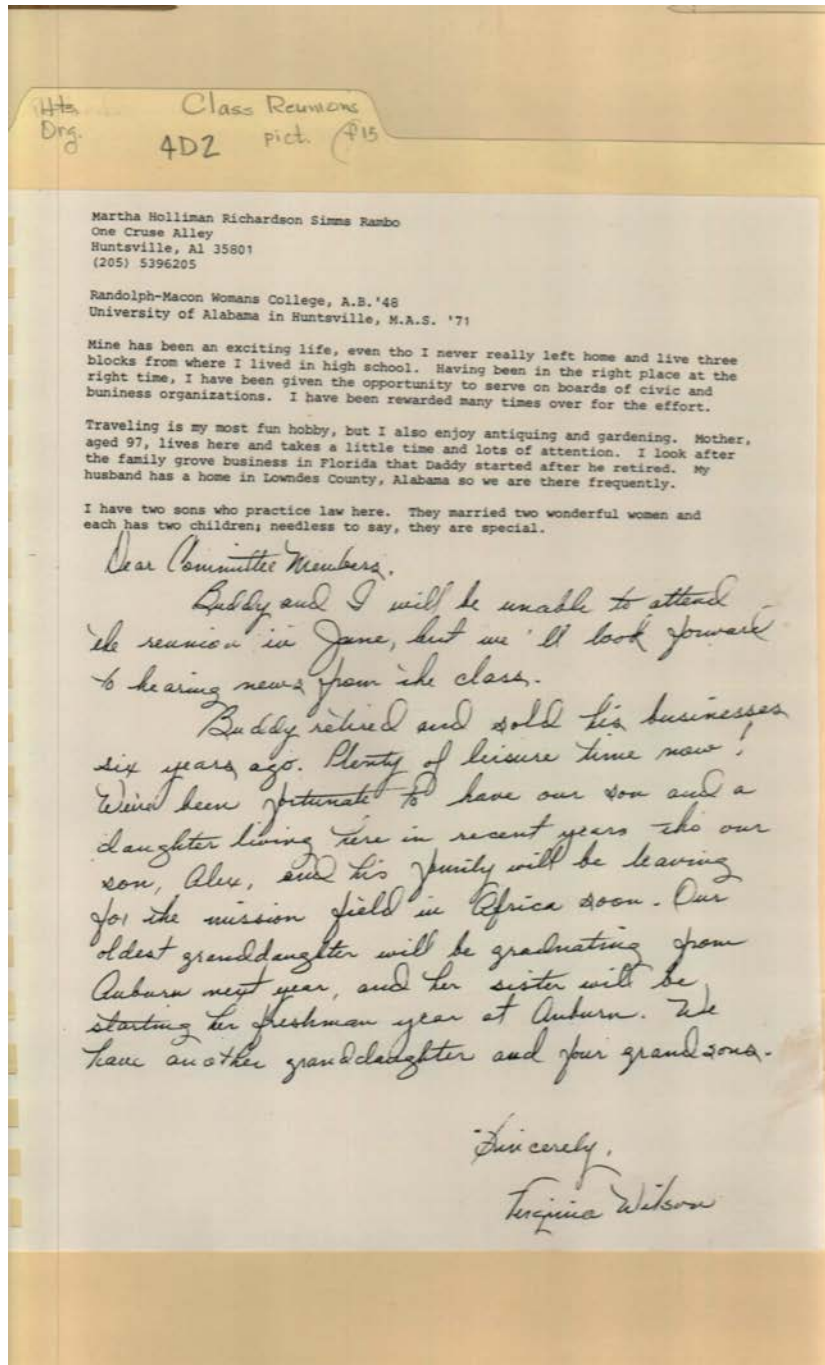 Hts. Class Reunions
Org. 4D2 pict. P15
Martha Holliman Richardson Simms Rambo
One Cruse Alley
Huntsville, Al 35801
(205) 5396205
Randolph-Macon Womans College, A.B.'48
University of Alabama in Huntsville, M.A.S. '71
Mine has been an exciting life, even tho I never really left home and live three
blocks from where I lived in high school. Having been in the right place at the
right time, I have been given the opportunity to serve on boards of civic and
buniness organizations. I have been rewarded many times over for the effort.
Traveling is my most fun hobby, but I also enjoy antiquing and gardening. Mother,
aged 97, lives here and takes a little time and lots of attention. I look after
the family grove business in Florida that Daddy started after he retired. My
husband has a home in Lowndes County, Alabama so we are there frequently.
I have two sons who practice law here. They married two wonderful women and
each has two children; needless to say, they are special.
Dear Committee Members,
Buddy and I will be unable to attend
the reunion in June, but we'll look forward
to hearing news from the class.
Buddy retired and sold his businesses
six years ago. Plenty of leisure time now!
We've been fortunate to have our son and a
daughter living here in recent years tho our
son, Alex, and his family will be leaving
for the mission field in Africa soon. Our
oldest granddaughter will be graduating from
Auburn next year, and her sister will be
starting her freshman year at Auburn. We
have another granddaughter and four grandsons.
Sincerely,
Virginia Wilson